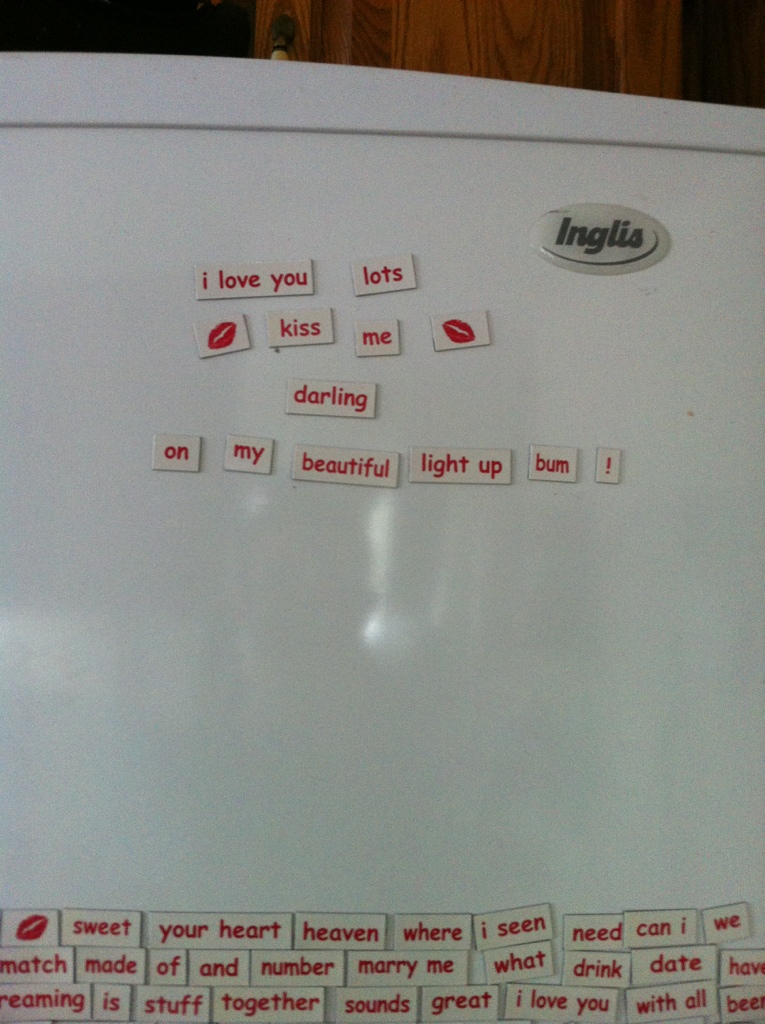 Inglis
i love you lots
kiss me
darling
on my beautiful light up bum !
sweet your heart heaven where i seen need can i we
match made of and number marry me what drink date have
reaming is stuff together sounds great i love you with all been